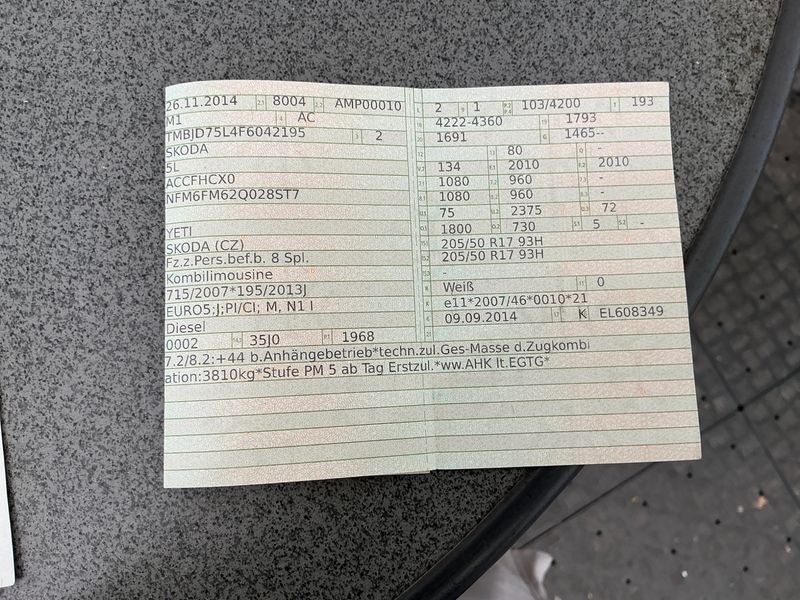 26.11.2014 2.1 8004 2.2 AMP00010
M1 4 AC
TMBJD75L4F6042195 3 2
SKODA
5L
ACCFHCX0
NFM6FM62Q028ST7
YETI
SKODA (CZ)
Fz.z.Pers.bef.b. 8 Spl.
Kombilimousine
715/2007*195/2013J
EURO5;J;PI/CI; M, N1 I
Diesel
0002 35J0 1968
7.2/8.2:+44 b.Anhängebetrieb*techn.zul.Ges-Masse d.Zugkombi
ation:3810kg*Stufe PM 5 ab Tag Erstzul.*ww.AHK lt.EGTG*
2 1 103/4200 193
4222-4360 1793
1691 1465--
80 -
134 2010 2010
1080 960 -
1080 960 -
75 2375 72
1800 730 5 -
205/50 R17 93H
205/50 R17 93H
-
Weiß 0
e11*2007/46*0010*21
09.09.2014 K EL608349